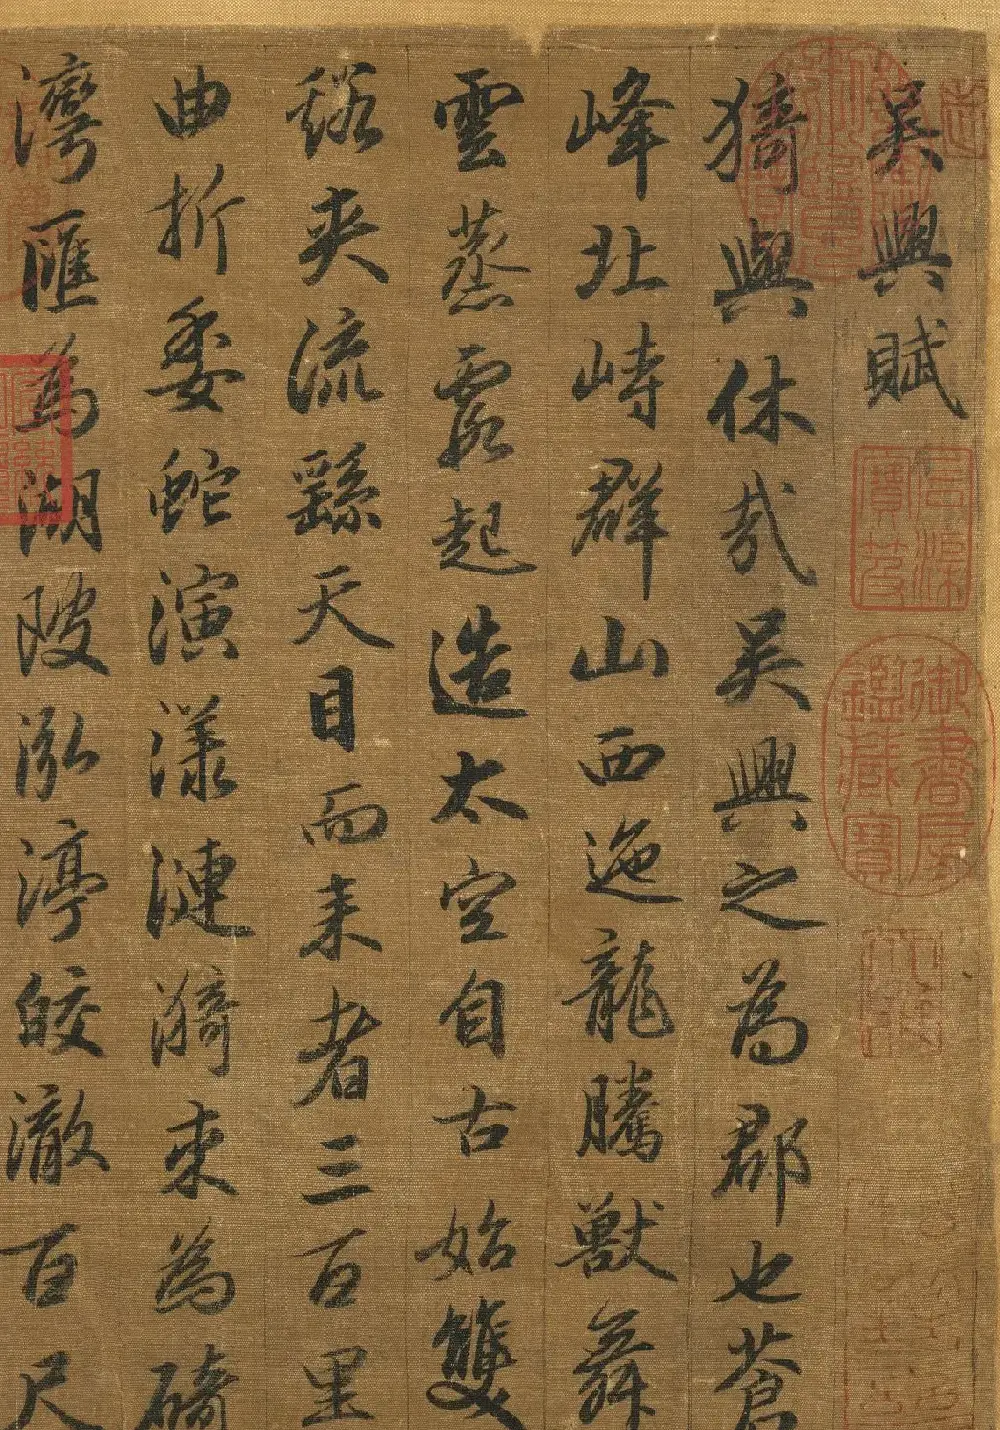 吳興賦
石渠寶笈
御書房鑑藏寶
猗與休哉吳興之為郡也蒼
峰北峙群山西迤龍騰獸舞
雲蒸霞起造太空自古始雙
谿夾流繇天目而来者三百里
曲折委蛇演漾漣漪束為碕
灣匯為湖陂泓渟皎澈百尺